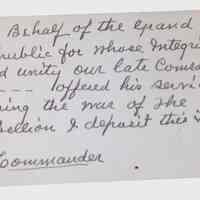 Behalf of the Grand
public for whose Integri
d unity our late Comra
--- offered his servi
ing the war of the
bellion I deposit this
Commander